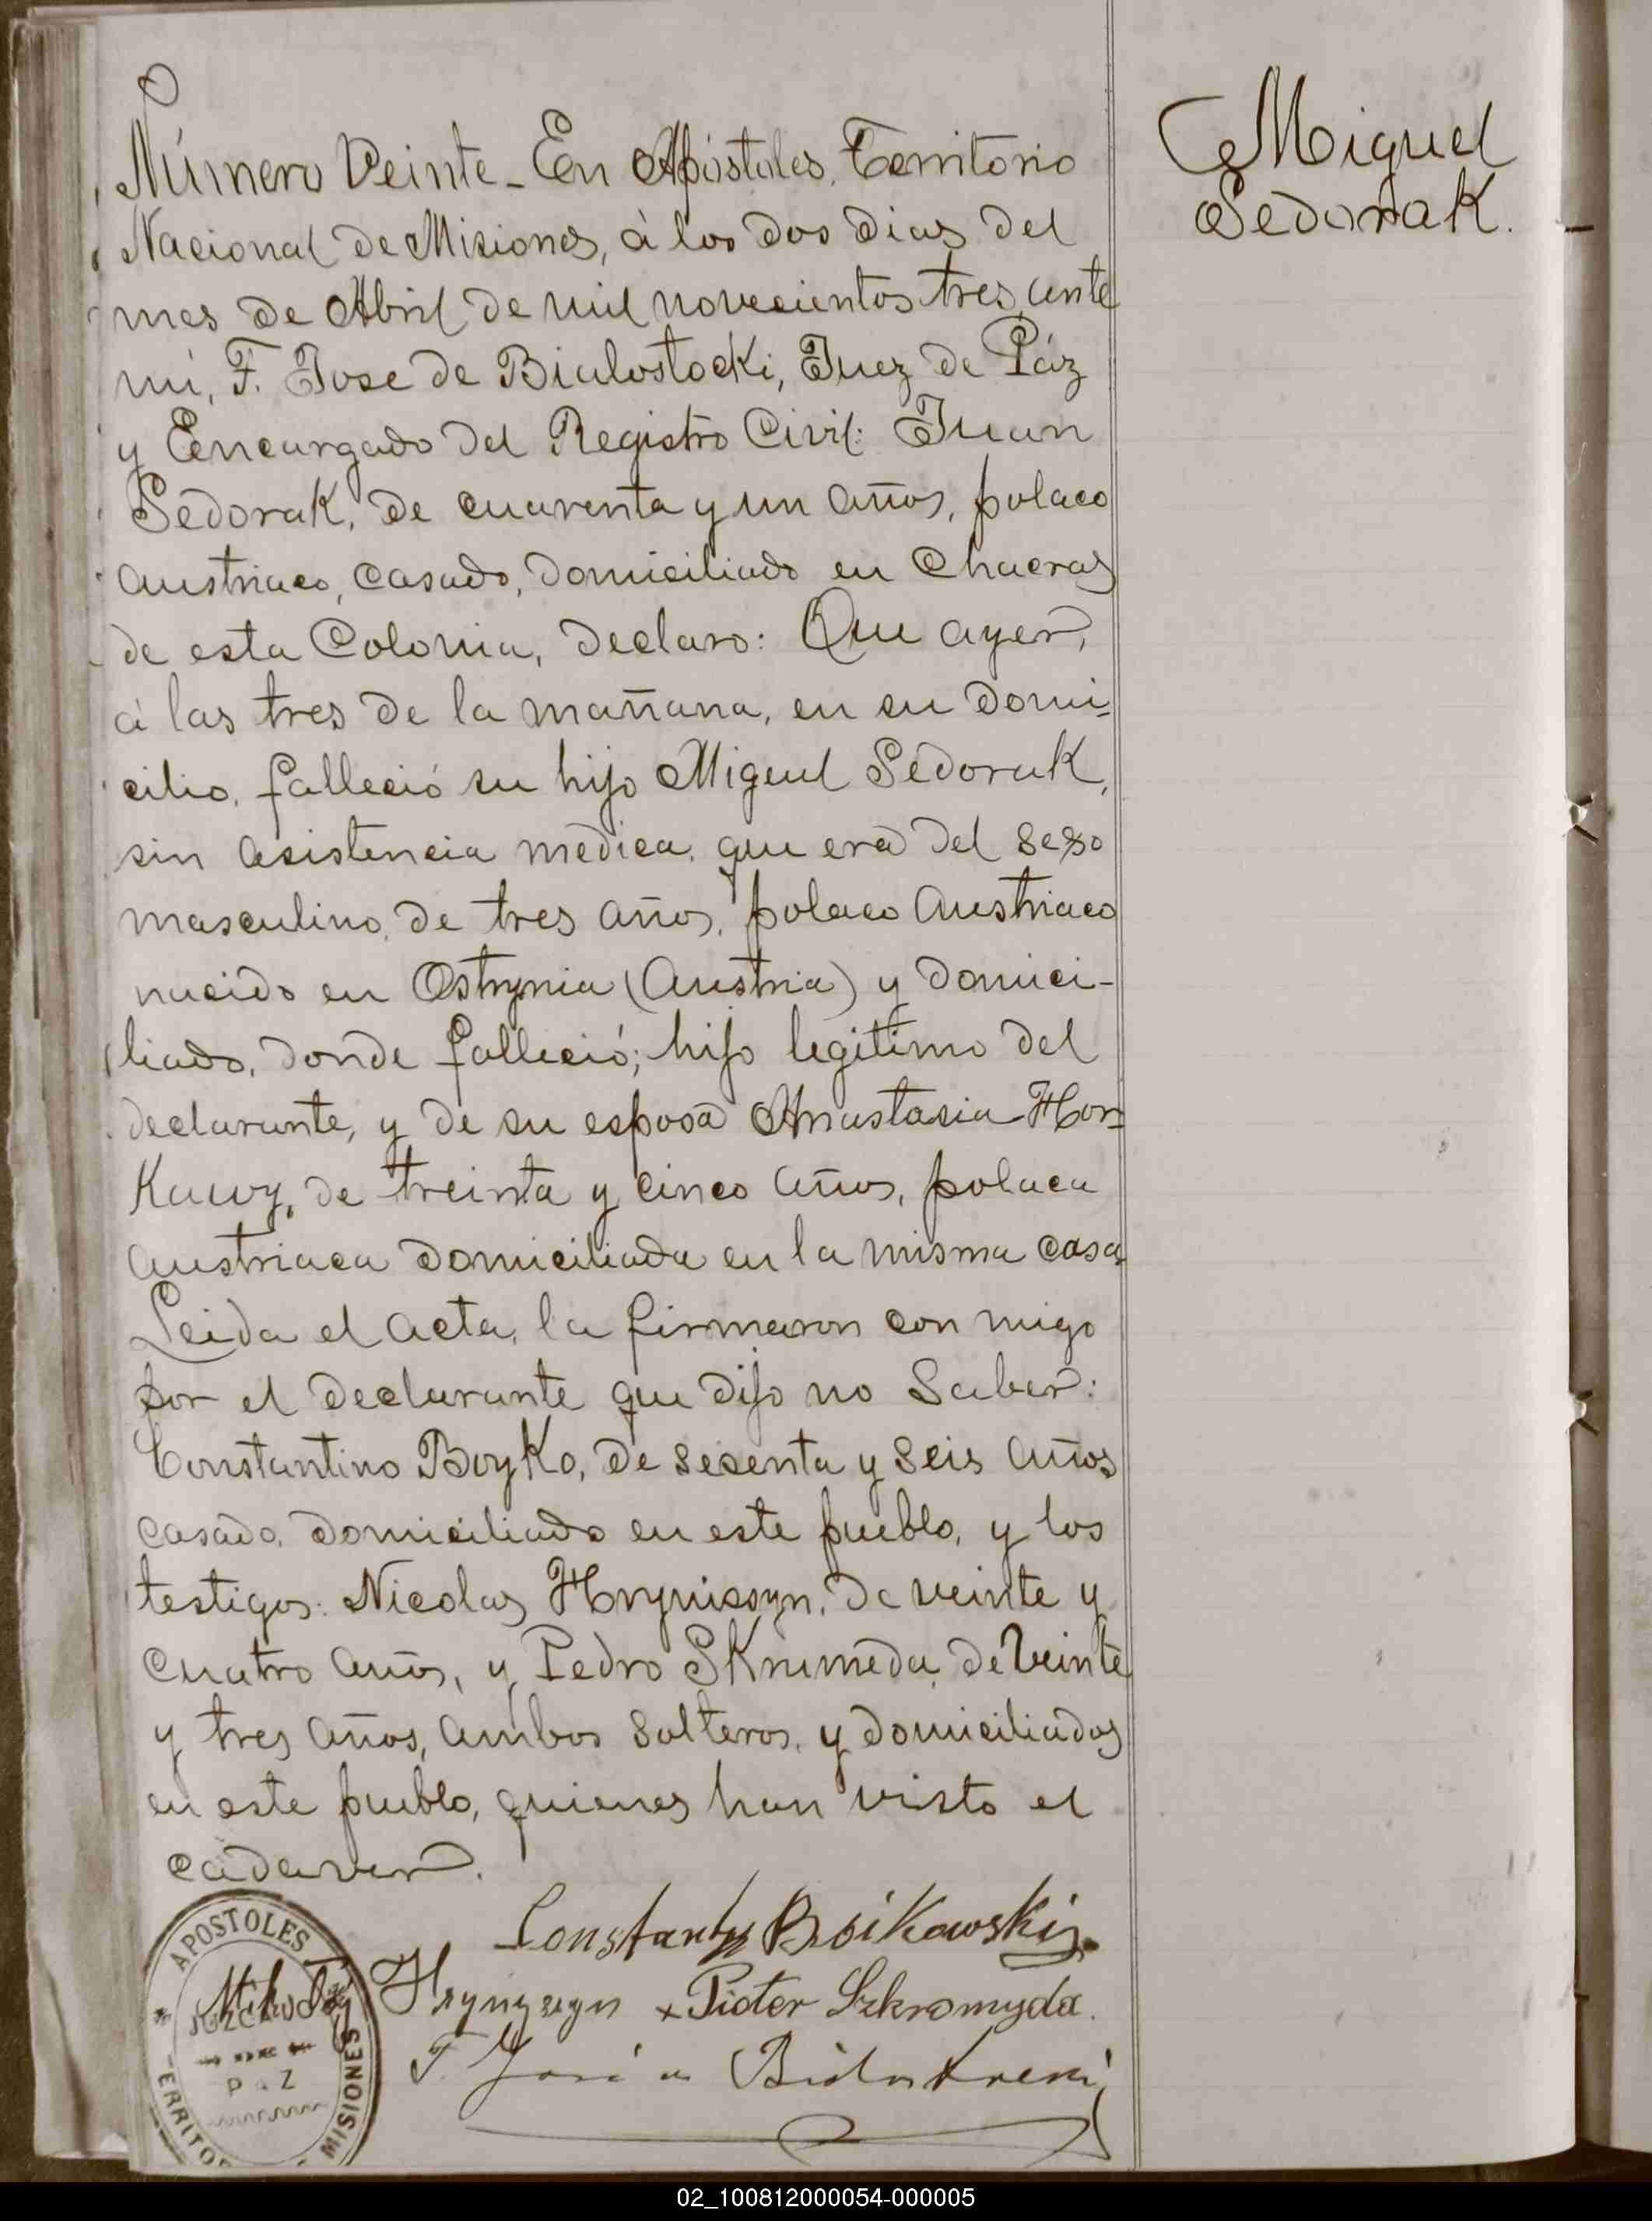 Número Veinte_ En Apóstoles, Territorio
Nacional de Misiones, à los dos dias del
mes de Abril de mil novecientos tres, ante
mi, F. Jose de Bialostocki, Juez de Páz
y Encargado del Registro Civil: Juan
Sedorak, de cuarenta y un años, polaco
austriaco, casado, domiciliado en Chacras
de esta Colonia, declaro: Que ayer,
à las tres de la mañana, en su domi-
cilio, falleció su hijo Miguel Sedorak,
sin asistencia medica, que era del sexo
masculino, de tres años, polaco austriaco
nacido en Ostrynia (Austria) y domici-
liado, donde falleció; hijo legitimo del
declarante, y de su esposa Anastasia Hor-
Kawy, de treinta y cinco años, polaca
austriaca domiciliada en la misma casa.
Leida el acta, la firmaron con migo
por el declarante que dijo no saber:
Constantino Boyko, de sesenta y seis años
casado, domiciliado en este pueblo, y los
testigos: Nicolas Hryniszyn, de veinte y
cuatro años, y Pedro Skrumeda, de veinte
y tres años, ambos solteros, y domiciliados
en este pueblo, quienes han visto el
cadaver.
Constanty Boikowski
Hrynyszyn x Pioter Szkromyda.
F. José de
APOSTOLES
PAZ
MISIONES
Miguel
Sedorak.
02_100812000054-000005